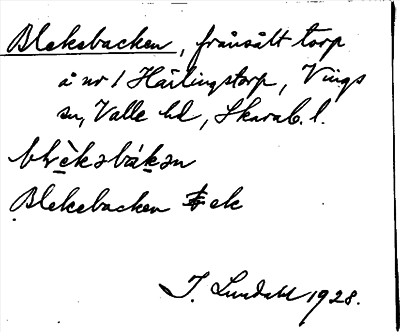 Blekebacken, frånsålt torp
å nr 1 Härlingstorp, Vings
sn, Valle hd, Skarab. l.
blèkəbákən
Blekebacken ek
I. Lundahl 1928.